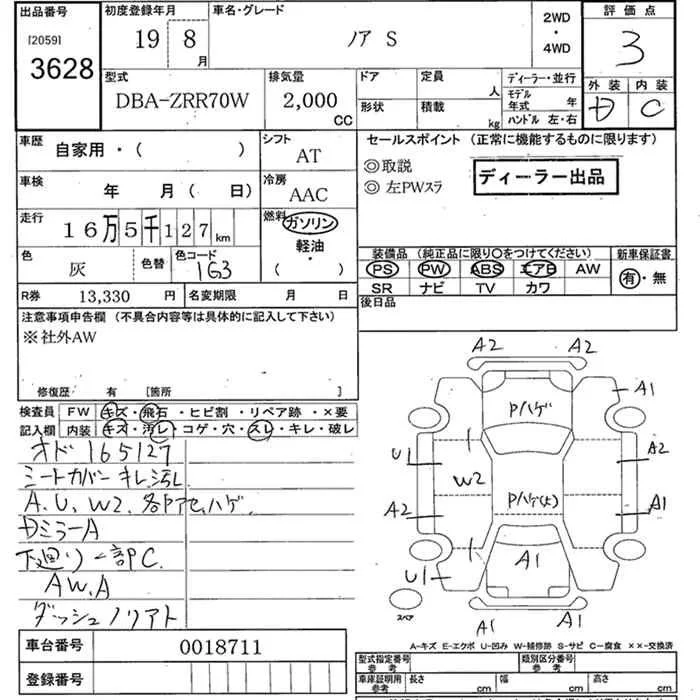 出品番号 初度登録年月 車名・グレード 2WD ・ 4WD 評価点
[2059] 3628 19 8月 ノア S 3
型式 排気量 ドア 定員 ディーラー・並行 外装 内装
DBA-ZRR70W 2,000 CC 人 モデル年式 年 D C
形状 積載 kg ハンドル 左・右
車歴 自家用・( ) シフト AT セールスポイント (正常に機能するものに限ります)
◎取説
◎左PWスラ ディーラー出品
車検 年 月( 日) 冷房 AAC
走行 16万5千127km 燃料 ガソリン 軽油・( )
色 灰 色替 色コード 1G3
装備品 (純正品に限り○をつけてください) 新車保証書
PS PW ABS エアB AW 有・無
SR ナビ TV カワ
R券 13,330 円 名変期限 月 日 後日品
注意事項申告欄 (不具合内容等は具体的に記入して下さい)
※社外AW
修復歴: 有 [箇所 ]
検査員 FW キズ・飛石・ヒビ割・リペア跡・×要
記入欄 内装 キズ・汚レ・コゲ・穴・スレ・キレ・破レ
オド165127
シートカバーキレ汚レ
A.U.W2.各ドアモールハゲ
DミラーA
下廻り一部PC.
AW.A
ダッシュノリアト
A2 A2
Pハゲ A1
U1 A2
W2 Pハゲ(大)
A2 A1
U1 A1
スペア A1 A1
A-キズ E-エクボ U-凹み W-補修跡 S-サビ C-腐食 ××-交換済
車台番号 0018711
登録番号
型式指定番号 参考 類別区分番号 参考
車庫証明用 参考 長さ cm 幅 cm 高さ cm